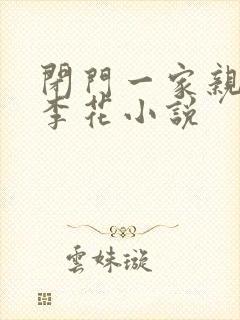 閉門一家親
李花小說
雲妹璇